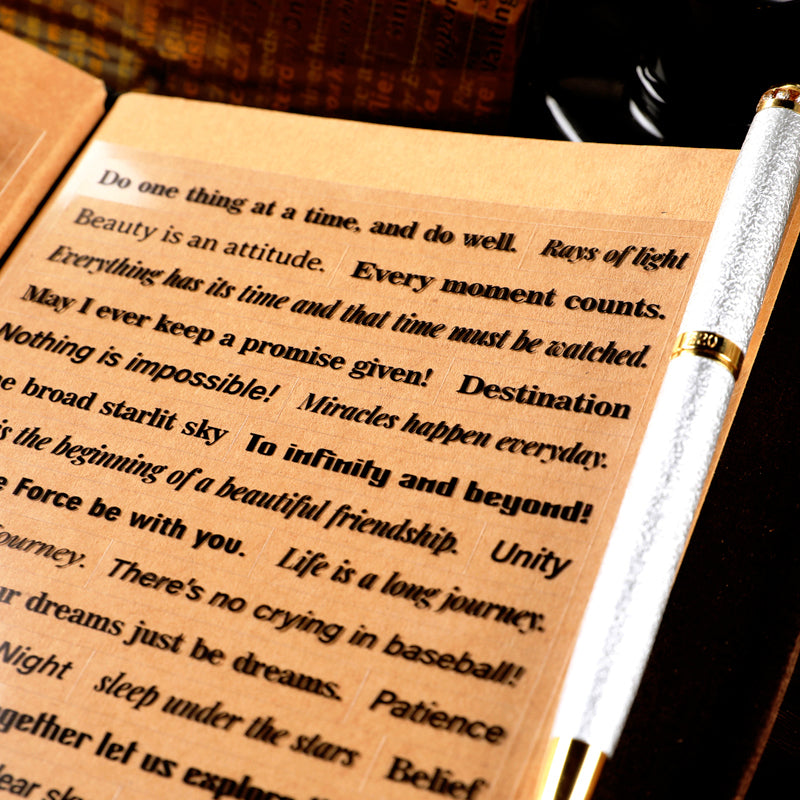 Do one thing at a time, and do well. Rays of light
Beauty is an attitude. Every moment counts.
Everything has its time and that time must be watched.
May I ever keep a promise given! Destination
Nothing is impossible! Miracles happen everyday.
broad starlit sky To infinity and beyond!
is the beginning of a beautiful friendship. Unity
Force be with you. Life is a long journey.
Journey. There's no crying in baseball!
dreams just be dreams. Patience
Night sleep under the stars
together let us explore Belief